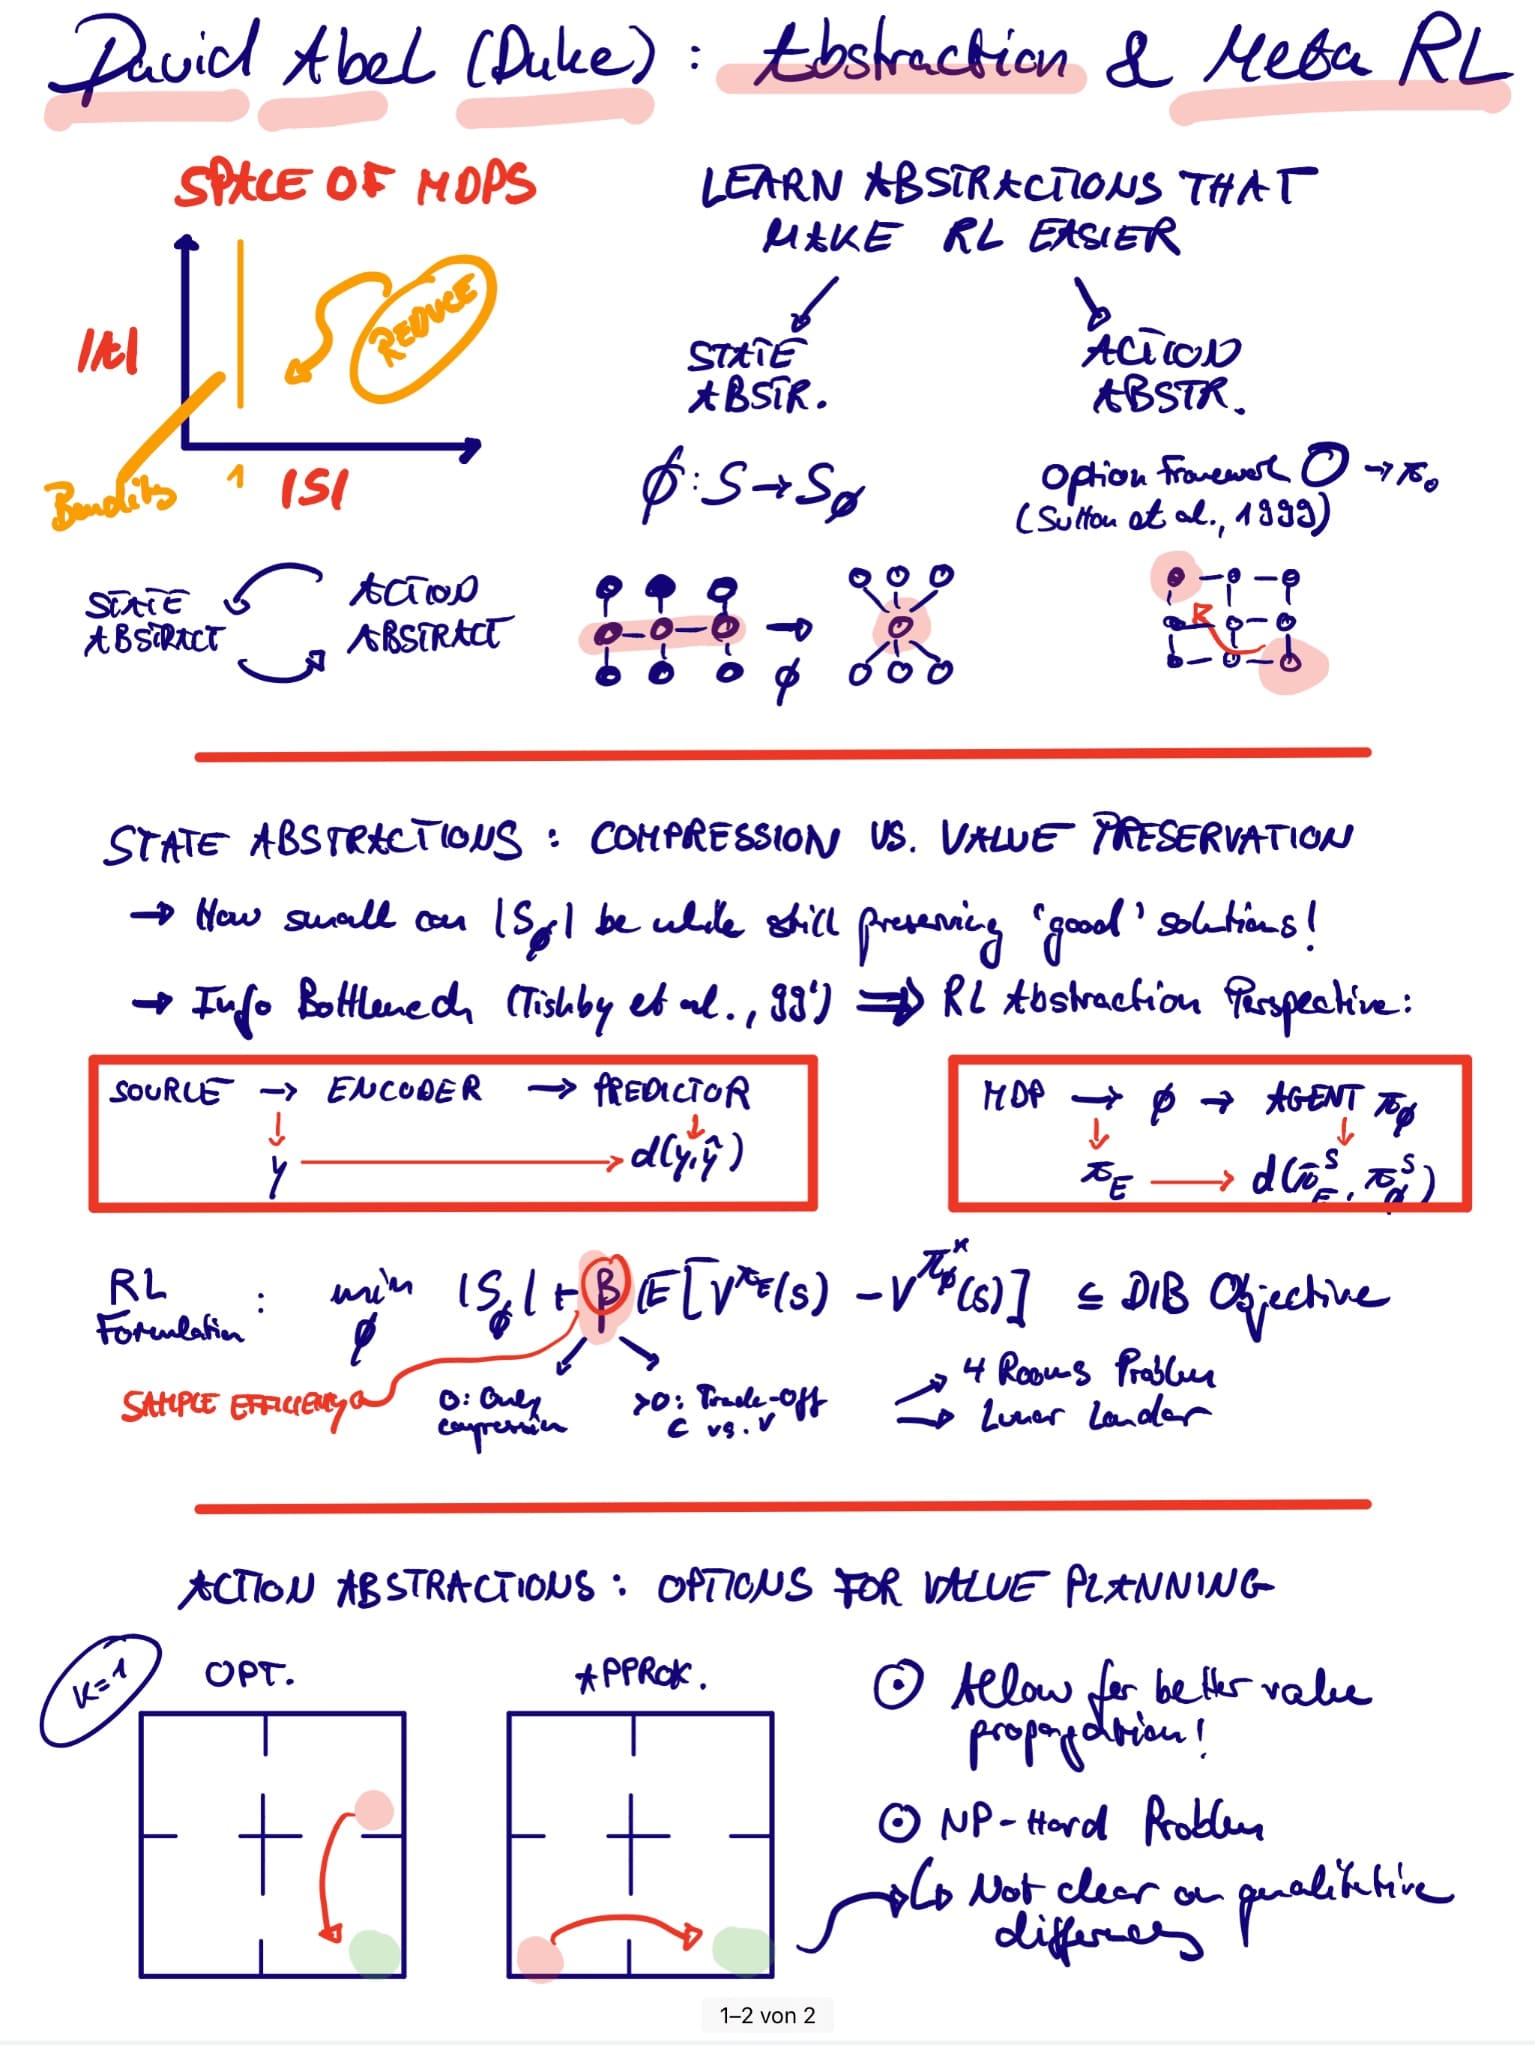 David Abel (Duke) : Abstraction & Meta RL
SPACE OF MDPS
|A|
REDUCE
Bandits
1
|S|
LEARN ABSTRACTIONS THAT
MAKE RL EASIER
STATE
ABSTR.
ACTION
ABSTR.
ϕ : S → Sϕ
Option Framework O → π₀
(Sutton et al., 1999)
STATE
ABSTRACT
ACTION
ABSTRACT
→
ϕ
STATE ABSTRACTIONS : COMPRESSION VS. VALUE PRESERVATION
→ How small can |Sϕ| be while still preserving 'good' solutions!
→ Info Bottleneck (Tishby et al., 99') ⇒ RL Abstraction Perspective:
SOURCE → ENCODER → PREDICTOR
y → d(y,ŷ)
MDP → ϕ → AGENT πϕ
π_E → d(π_E^S, πϕ^S)
RL
Formulation : min ϕ |Sϕ| + β E[V^{π_E}(s) - V^{πϕ*}(s)] ≤ DIB Objective
SAMPLE EFFICIENCY
0: Only
compression
>0: Trade-Off
C vs. V
→ 4 Rooms Problem
→ Lunar Lander
ACTION ABSTRACTIONS : OPTIONS FOR VALUE PLANNING
K=1
OPT.
APPROX.
⊙ Allow for better value
propagation!
⊙ NP-Hard Problem
↳ Not clear on qualitative
differences
1–2 von 2